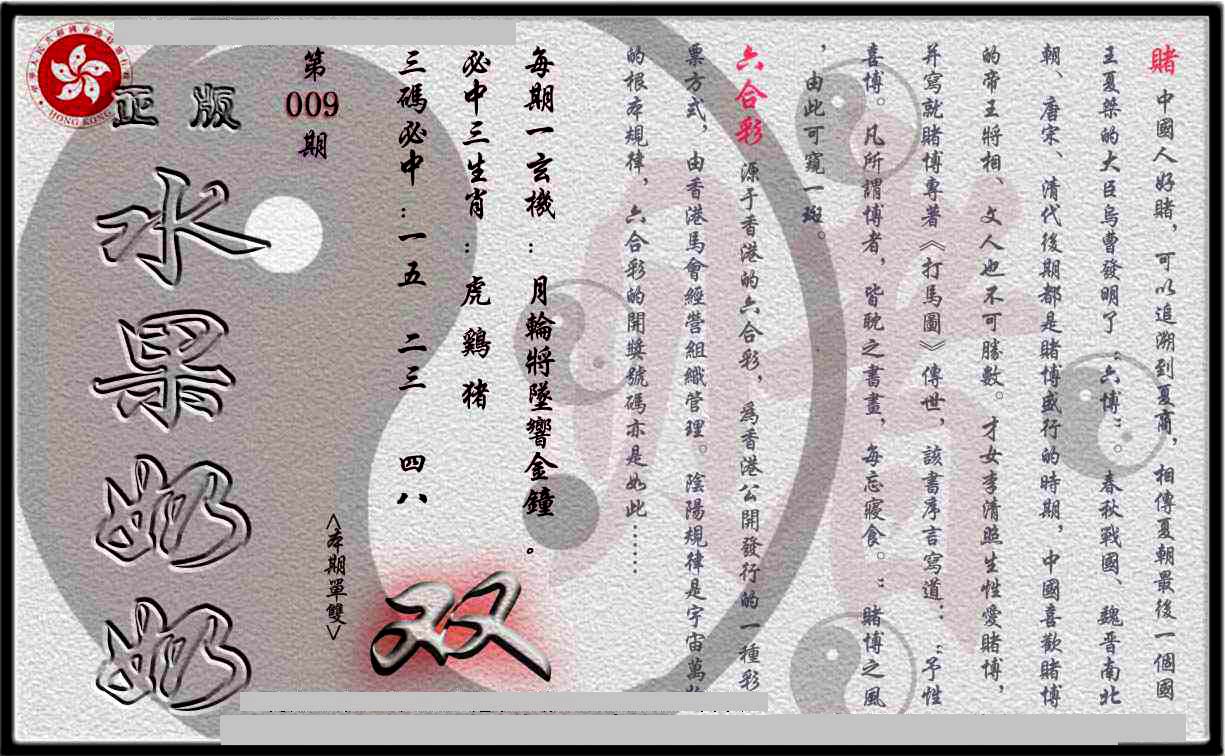 賭 中國人好賭，可以追溯到夏商，相傳夏朝最後一個國
王夏桀的大臣烏曹發明了“六博” 春秋戰國、魏晋南北
朝、唐宋、清代後期都是賭博盛行的時期，中國喜歡賭博
的帝王將相、文人也不可勝數。才女李清照生性愛賭博，
并寫就賭博專著《打馬圖》傳世，該書序言寫道：“予性
喜博。凡所謂博者，皆耽之書畫，每忘寢食。”賭博之風
，由此可窺一斑。
六合彩 源于香港的六合彩，爲香港公開發行的一種彩
票方式，由香港馬會經營組織管理。陰陽規律是宇宙萬
的根本規律，六合彩的開獎號碼亦是如此……
每期一玄機：月輪將墜響金鐘。
必中三生肖：虎 鷄 猪
三碼必中：一五 二三 四八
<本期單雙>
双
第
009
期
正版
水果奶奶
HONG KONG